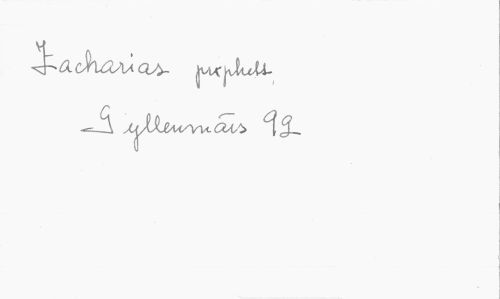 Zacharias prophett,
Gyllenmärs 92